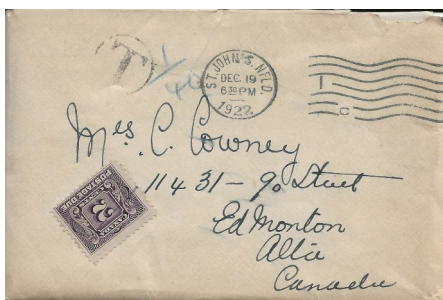 T
1/40
ST. JOHN'S, NFLD.
DEC. 19
6 30 PM
1922
I
C
Mrs. C. Cowney
11431 - 90 Street
Edmonton
Alta
Canada
CANADA
2
POSTAGE DUE